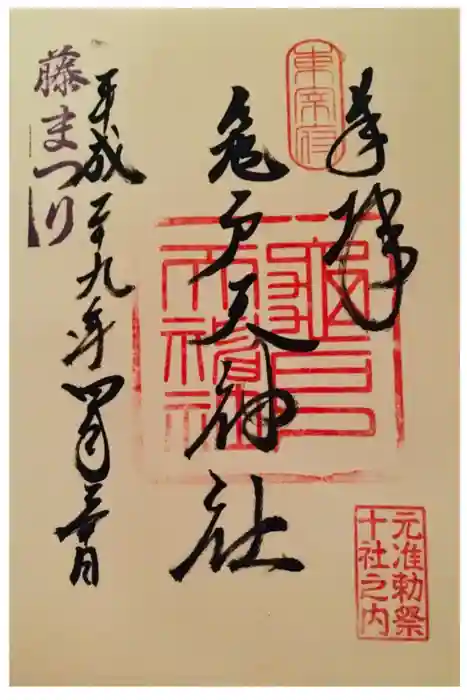 奉拝
東宰府
亀戸天神社
龜戸
天神社
元准勅祭
十社之内
平成二十九年四月三十日
藤まつり